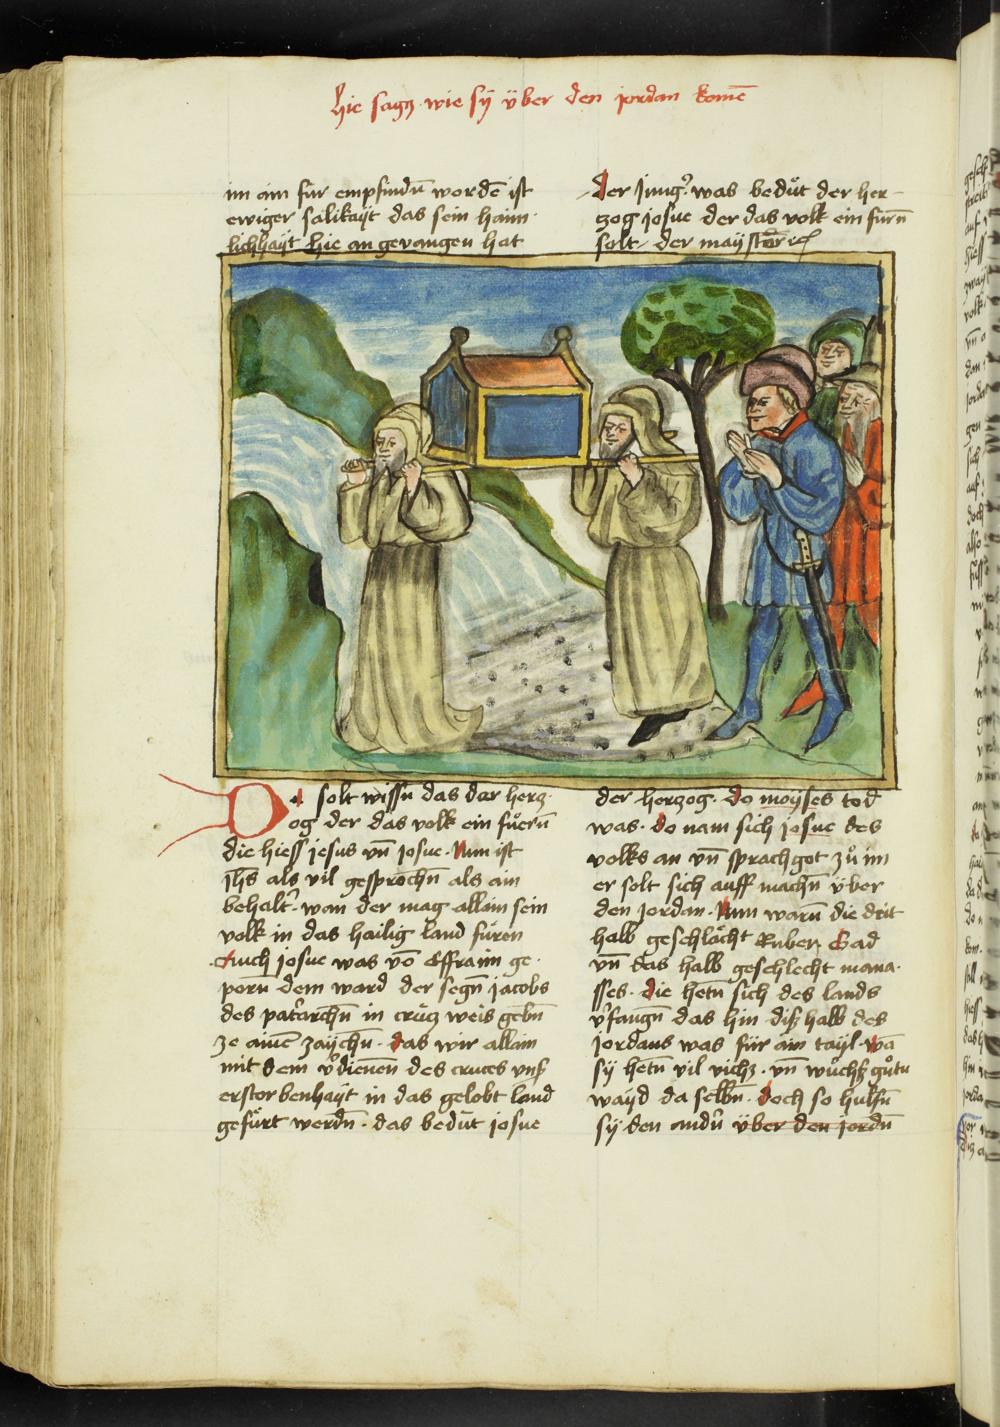 hie sagz wie sÿ über den jordan komē
im ain für empfindn̄ wordē ist
ewiger sälikaÿt das sein haim
lichhaÿt hie an gevangen hat
Der jung̾ was bedüt der her-
zog josue der das volk ein fürn̄
solt. der maÿster
DU solt wissn̄ das der herz
og der das volk ein fuern̄
die hiess jesus vn̄ josue. Num ist
jħs als vil gesprochn̄ als ain
behalt̾. wan der mag allain sein
volk in das hailig land füren
Auch josue was vō Effraim ge
porn̄ dem ward der segn̄ jacobs
des patr̾archn̄ in crütz weis gebn̄
ze ainē zaÿchn̄. das wir allain
mit dem v̾dienen des cruces vnß
erstorbenhaÿt in das gelobt land
gefürt werdn̄. das bedüt josue
der herzog. do moÿses tod
was. do nam sich josue des
volks an vn̄ sprach got zů im
er solt sich auff machn̄ über
den jordan. Num warn̄ die drit
halb geschlächt Ruben Gad
vn̄ das halb geschlecht mana
sses. die hetn̄ sich des lands
v̾fangn̄ das hin diß halb des
jordans was für ain tayl. wā
sÿ hetn̄ vil vichz. vn̄ wůchß gůtu
waÿd da selbn̄. doch so hulfn̄
sÿ den andn̄ über den jordn̄